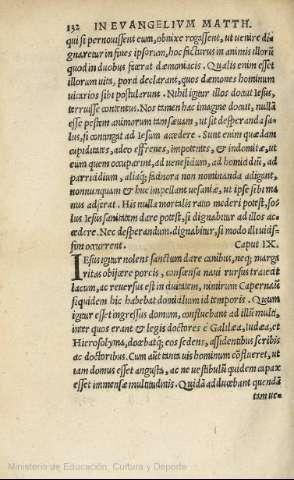 132 IN EVANGELIVM MATTH.
qui si pernouissent eum, obnixe rogassent, ut uenire di
gnaretur in fines ipsorum, hoc facturus in animis illorũ
quod in duobus fecerat dæmoniacis. Qualis enim esset
illorum uita, porci declarant, quos dæmones hominum
uicarios sibi postularunt. Nihil igitur illos docuit Iesus,
terruisse contentus. Nos tamen hæc imagine docuit, nullã
esse pestem animorum tam sæuam, ut sit desperanda sa
lus, si contingat ad Iesum accedere. Sunt enim quædam
cupiditates, adeo effrenes, impotentes, & indomitæ, ut
eum quem occuparint, ad ueneficium, ad homicidiũ, ad
parricidium, aliaq; facinora non nominanda adigant,
nonnunquam & huc impellant uesaniæ, ut ipse sibi ma
nus adferat. His nulla mortalis ratio mederi potest, so-
lus Iesus sanitatem dare potest, si dignabitur ad illos ac
cedere. Nec desperandum. dignabitur, si modo illi uicis-
sim occurrent. Caput IX.
IESus igitur nolens sanctum dare canibus, neq; marga
ritas obijcere porcis, conscensa naui rursus traiecit
lacum, ac reuersus est in ciuitatem, nimirum Capernaũ
siquidem hic habebat domicilium id temporis. Quum
igitur esset ingressus domum, confluebant ad illũ multi,
inter quos erant & legis doctores è Galilæa, Iudæa, et
Hierosolyma, docebatq; eos sedens, assidentibus scribis
ac doctoribus. Cum aũt tanta uis hominum cõflueret, ut
tam domus esset angusta, ac ne uestibulũ quidem capax
esset immensæ multitudinis. Quidã adducebant quendã
tam ue-
Ministerio de Educación, Cultura y Deporte